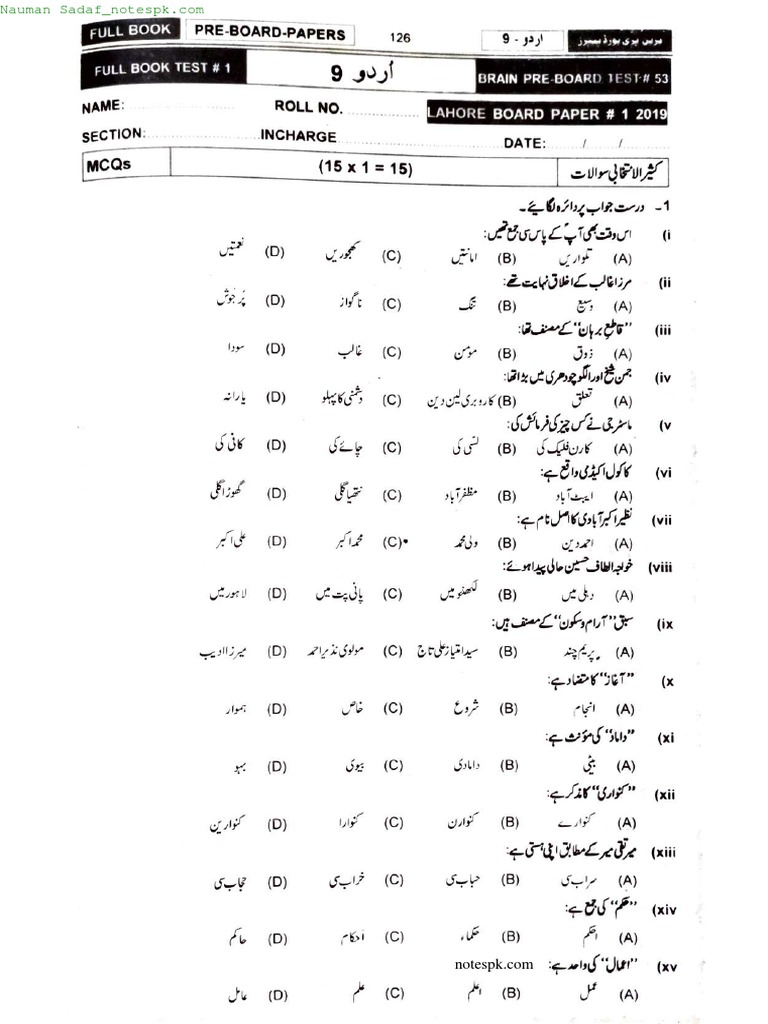 Nauman Sadaf_notespk.com
FULL BOOK PRE-BOARD-PAPERS 126 اردو - 9 برین پری بورڈ پیپرز
FULL BOOK TEST # 1 اُردو 9 BRAIN PRE-BOARD TEST # 53
NAME: ROLL NO. LAHORE BOARD PAPER # 1 2019
SECTION: INCHARGE DATE: / /
MCQs (15 x 1 = 15) کثیر الانتخابی سوالات
1- درست جواب پر دائرہ لگائیے۔
(i اس وقت بھی آپؐ کے پاس سی جمع تھیں:
(A) تلواریں (B) امانتیں (C) کھجوریں (D) نعمتیں
(ii مرزا غالب کے اخلاق نہایت تھے:
(A) وسیع (B) تنگ (C) ناگواز (D) پُر جوش
(iii "قاطع برہان" کے مصنف تھا:
(A) ذوق (B) مومن (C) غالب (D) سودا
(iv جمن شیخ اور الگو چودھری میں بڑا تھا:
(A) تعلق (B) کاروبری لین دین (C) دشمنی کا پہلو (D) یارانہ
(v ماسٹر جی نے کس چیز کی فرمائش کی:
(A) کارن فلیک کی (B) لسّی کی (C) چائے کی (D) کافی کی
(vi کاکول اکیڈمی واقع ہے:
(A) ایبٹ آباد (B) مظفر آباد (C) نتھیا گلی (D) گھوڑا گلی
(vii نظیر اکبر آبادی کا اصل نام ہے:
(A) احمد دین (B) ولی محمد (C) محمد اکبر (D) علی اکبر
(viii خواجہ الطاف حسین حالی پیدا ہوئے:
(A) دہلی میں (B) لکھنؤ میں (C) پانی پت میں (D) لاہور میں
(ix سبق "آرام و سکون" کے مصنف ہیں:
(A) پریم چند (B) سید امتیاز علی تاج (C) مولوی نذیر احمد (D) میرزا ادیب
(x "آغاز" کا متضاد ہے:
(A) انجام (B) شروع (C) خاص (D) ہموار
(xi "داماد" کی مؤنث ہے:
(A) بیٹی (B) دامادی (C) بیوی (D) بہو
(xii "کنواری" کا مذکر ہے:
(A) کنوارے (B) کنوارن (C) کنوارا (D) کنوارین
(xiii میر تقی میر کے مطابق اپنی ہستی ہے:
(A) سراب سی (B) حباب سی (C) خراب سی (D) حجاب سی
(xiv "حکم" کی جمع ہے:
(A) احکم (B) حکماء (C) احکام (D) حاکم
(xv "اعمال" کی واحد ہے: notespk.com
(A) عمل (B) اعلم (C) علم (D) عامل